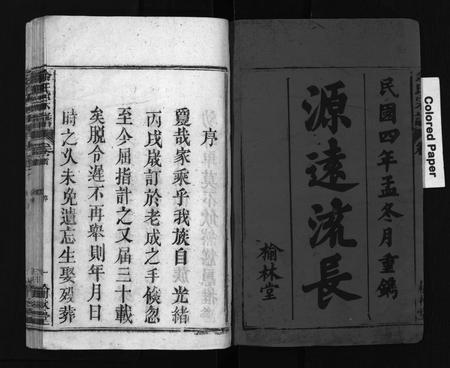 民國四年孟冬月重鐫
源遠流長
榆林堂
序
夐哉家乘乎我族自光緒
丙戌歲訂於老成之手倏忽
至今屈指計之又届三十載
矣脱今遲不再舉則年月日
時之久未免遺忘生娶殁葬
Colored Paper